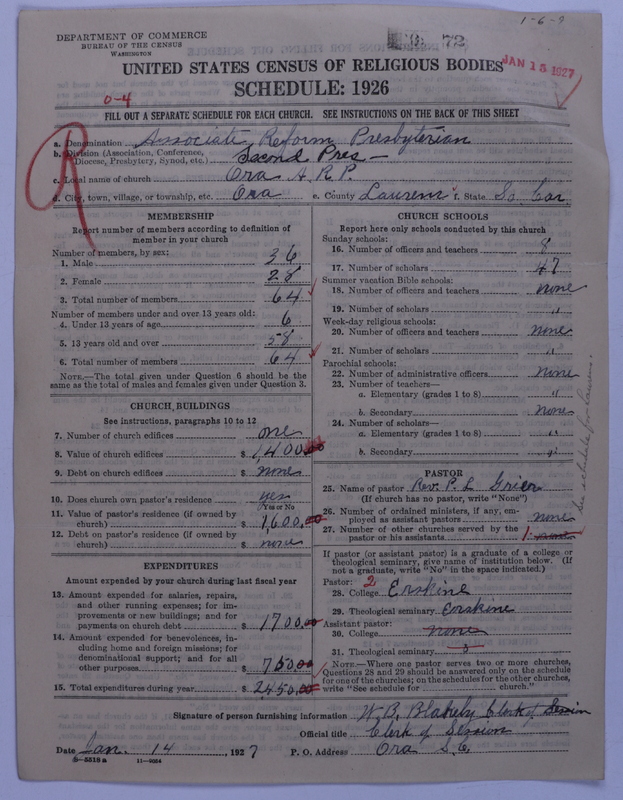 1-6-9
DEPARTMENT OF COMMERCE
BUREAU OF THE CENSUS
WASHINGTON
72
JAN 15 1927
UNITED STATES CENSUS OF RELIGIOUS BODIES
SCHEDULE: 1926
0-4
FILL OUT A SEPARATE SCHEDULE FOR EACH CHURCH. SEE INSTRUCTIONS ON THE BACK OF THIS SHEET
R
a. Denomination Associate Reform Presbyterian
b. Division (Association, Conference, Diocese, Presbytery, Synod, etc.) Second Pres—
c. Local name of church Ora A.R.P.
d. City, town, village, or township, etc. Ora e. County Laurens f. State So. Car
MEMBERSHIP
Report number of members according to definition of
member in your church
Number of members, by sex:
1. Male 36
2. Female 28
3. Total number of members 64
Number of members under and over 13 years old:
4. Under 13 years of age 6
5. 13 years old and over 58
6. Total number of members 64
NOTE.—The total given under Question 6 should be
same as the total of males and females given under Question 3.
CHURCH BUILDINGS
See instructions, paragraphs 10 to 12
7. Number of church edifices one
8. Value of church edifices $ 1,400.00
9. Debt on church edifices $ none
10. Does church own pastor's residence yes
(Yes or No)
11. Value of pastor's residence (if owned by
church) $ 1,600.00
12. Debt on pastor's residence (if owned by
church) $ none
EXPENDITURES
Amount expended by your church during last fiscal year
13. Amount expended for salaries, repairs,
and other running expenses; for im-
provements or new buildings; and for
payments on church debt $ 1700.00
14. Amount expended for benevolences, in-
cluding home and foreign missions; for
denominational support; and for all
other purposes $ 750.00
15. Total expenditures during year $ 2450.00
CHURCH SCHOOLS
Report here only schools conducted by this church
Sunday schools:
16. Number of officers and teachers 8
17. Number of scholars 47
Summer vacation Bible schools:
18. Number of officers and teachers none
19. Number of scholars "
Week-day religious schools:
20. Number of officers and teachers none
21. Number of scholars "
Parochial schools:
22. Number of administrative officers none
23. Number of teachers—
a. Elementary (grades 1 to 8) "
b. Secondary none
24. Number of scholars—
a. Elementary (grades 1 to 8) "
b. Secondary "
PASTOR
25. Name of pastor Rev. P. L. Grier
(If church has no pastor, write "None")
26. Number of ordained ministers, if any, em-
ployed as assistant pastors none
27. Number of other churches served by the
pastor or his assistants 1 none
If pastor (or assistant pastor) is a graduate of a college or
theological seminary, give name of institution below. (If
not a graduate, write "No" in the space indicated.)
Pastor: 2
28. College Erskine
29. Theological seminary Erskine
Assistant pastor:
30. College none
31. Theological seminary
NOTE.—Where one pastor serves two or more churches,
Questions 28 and 29 should be answered only on the schedule
for one of the churches; on the schedules for the other churches,
write "See schedule for church."
See schedule for
Signature of person furnishing information W. B. Blakely Clerk of Session
Official title Clerk of Session
Date Jan. 14 1927 P. O. Address Ora S.C.
8-5518 a 11-9034